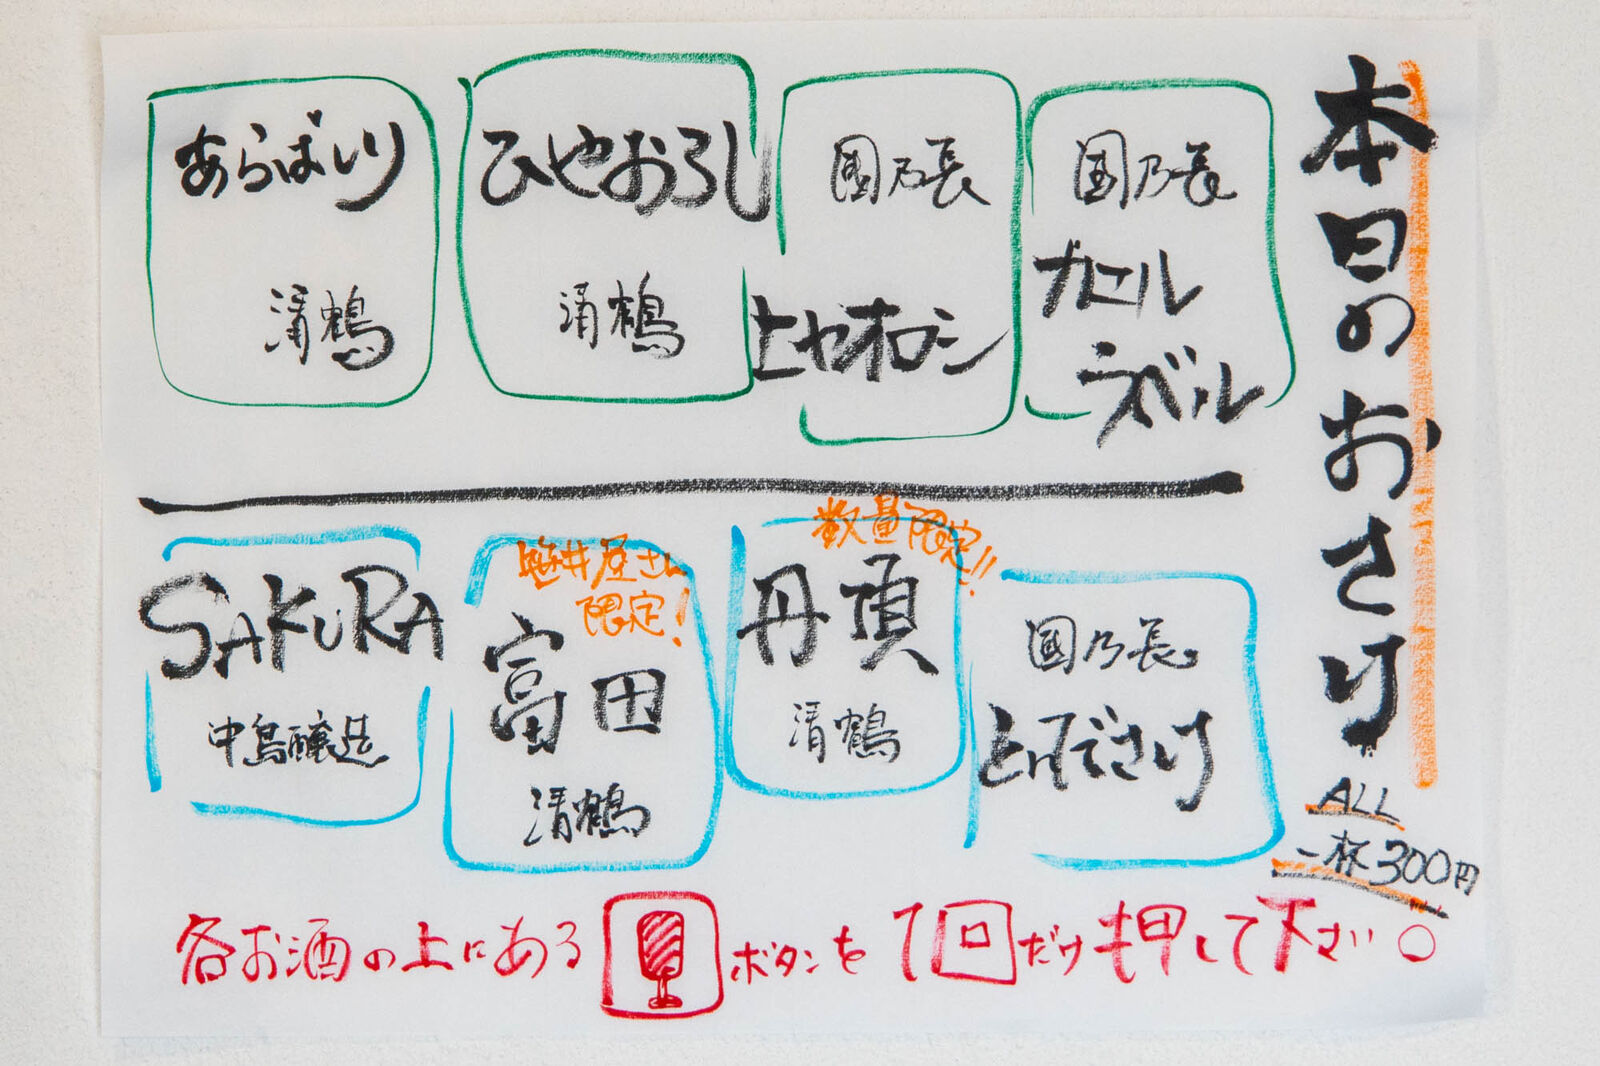 本日のおさけ
ALL
一杯300円
國乃長
カエル
ラベル
國乃長
ヒヤオロシ
ひやおろし
清鶴
あらばしり
清鶴
國乃長
といでさけ
数量限定!!
丹頂
清鶴
亀井屋さん
限定!
富田
清鶴
SAKURA
中島醸造
各お酒の上にある ボタンを1回だけ押して下さい。